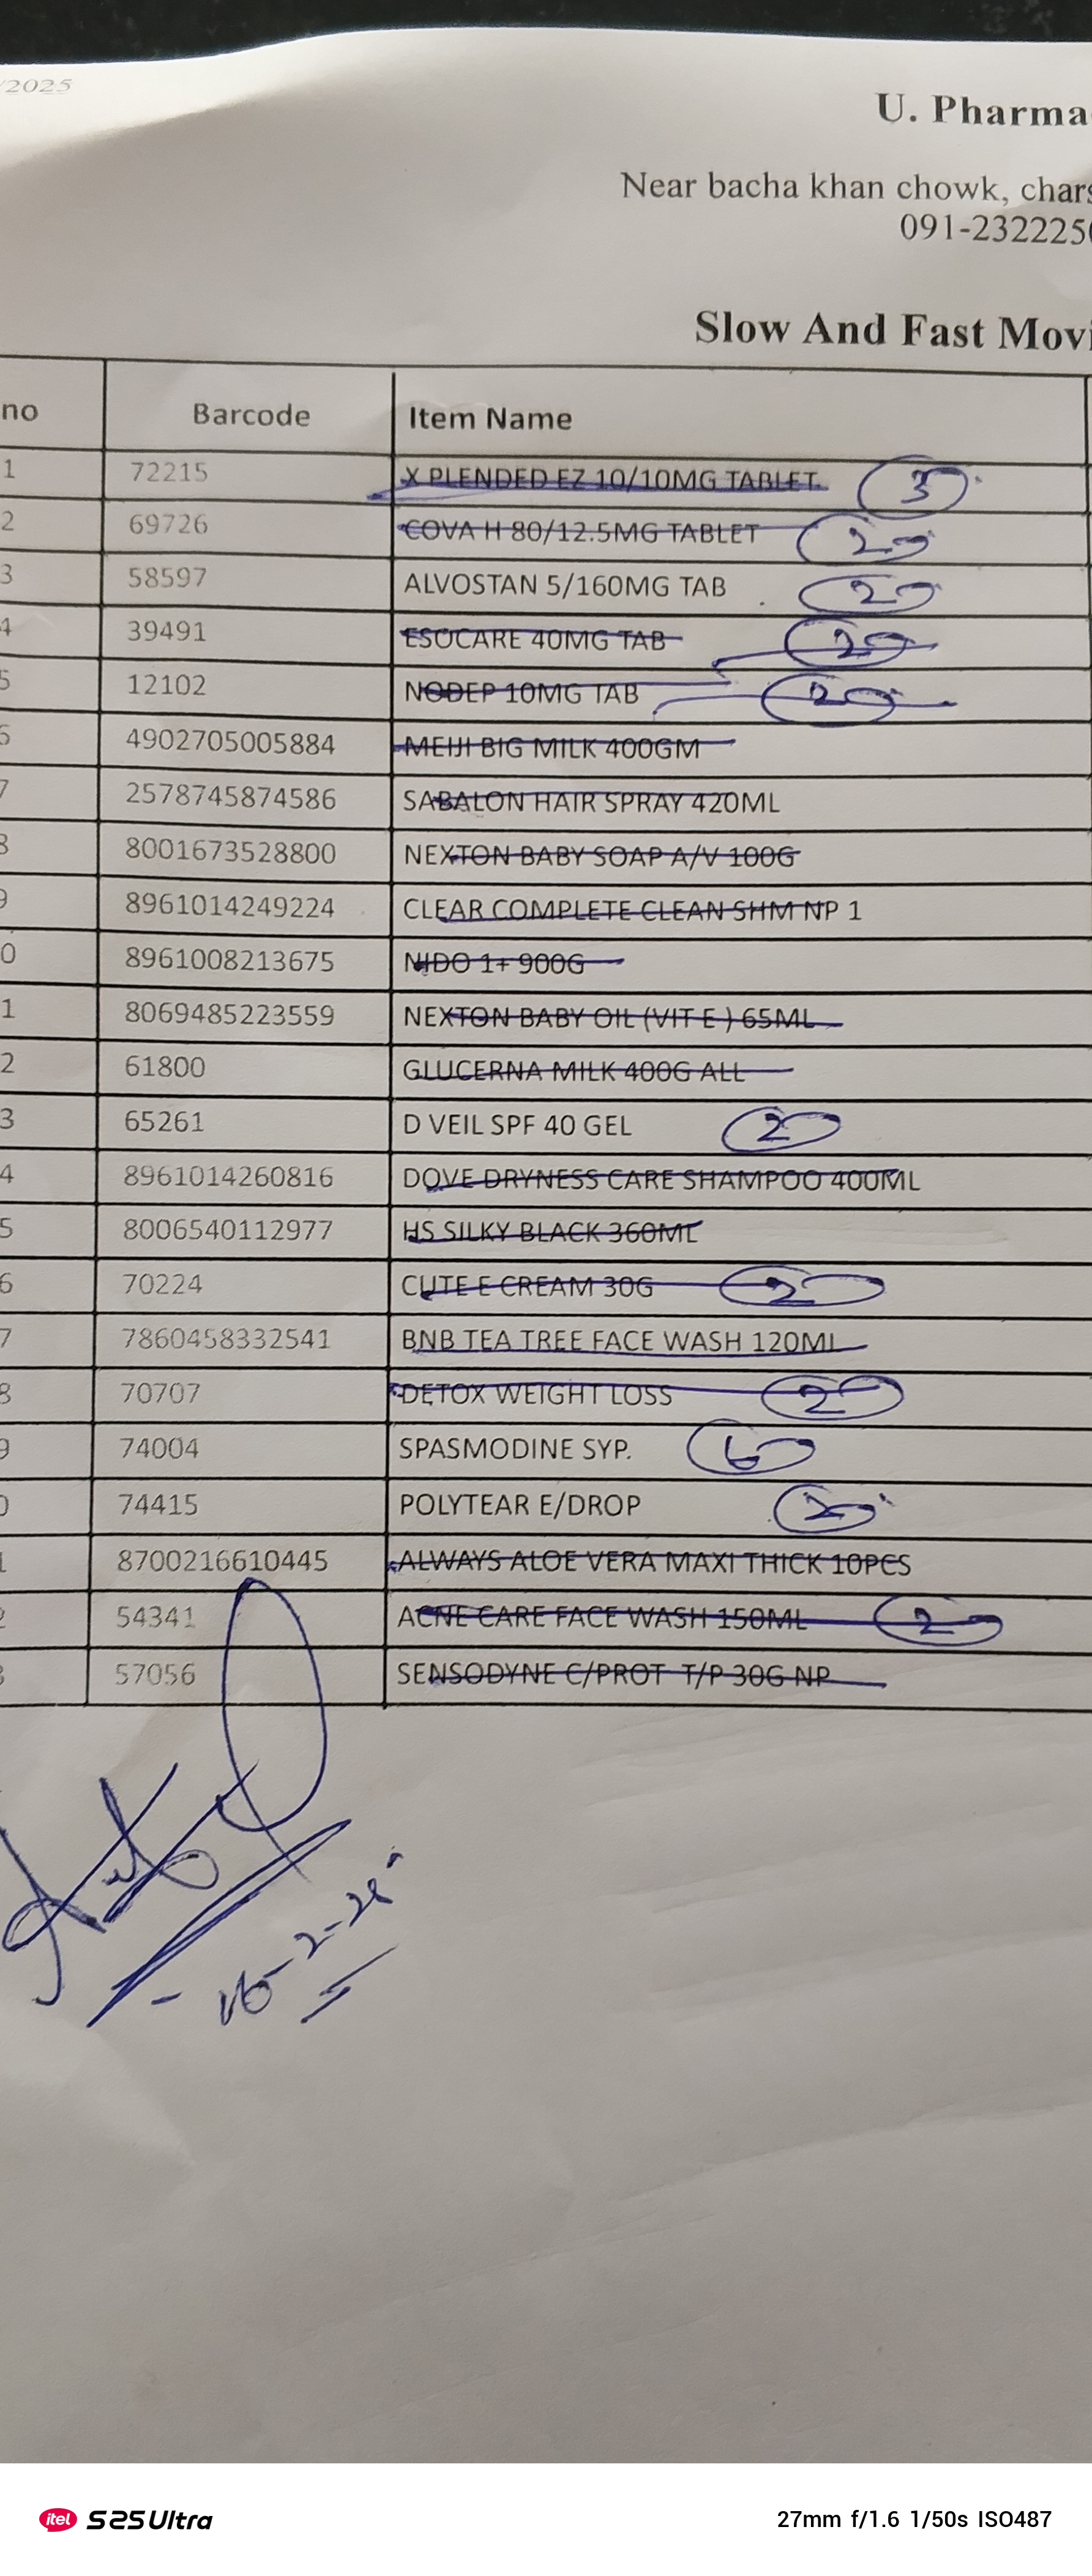 /2025
U. Pharma
Near bacha khan chowk, chars
091-2322250
Slow And Fast Movi
no Barcode Item Name
1 72215 X PLENDED EZ 10/10MG TABLET 3
2 69726 COVA H 80/12.5MG TABLET 2
3 58597 ALVOSTAN 5/160MG TAB 2
4 39491 ESOCARE 40MG TAB 2
5 12102 NODEP 10MG TAB 2
6 4902705005884 MEIJI BIG MILK 400GM
7 2578745874586 SABALON HAIR SPRAY 420ML
8 8001673528800 NEXTON BABY SOAP A/V 100G
9 8961014249224 CLEAR COMPLETE CLEAN SHM NP 1
0 8961008213675 NIDO 1+ 900G
1 8069485223559 NEXTON BABY OIL (VIT E ) 65ML
2 61800 GLUCERNA MILK 400G ALL
3 65261 D VEIL SPF 40 GEL 2
4 8961014260816 DOVE DRYNESS CARE SHAMPOO 400ML
5 8006540112977 HS SILKY BLACK 360ML
6 70224 CUTE E CREAM 30G 2
7 7860458332541 BNB TEA TREE FACE WASH 120ML
8 70707 DETOX WEIGHT LOSS 2
9 74004 SPASMODINE SYP. 6
0 74415 POLYTEAR E/DROP 2
1 8700216610445 ALWAYS ALOE VERA MAXI THICK 10PCS
2 54341 ACNE CARE FACE WASH 150ML 2
3 57056 SENSODYNE C/PROT T/P 30G NP
itel S25 Ultra 27mm f/1.6 1/50s ISO487